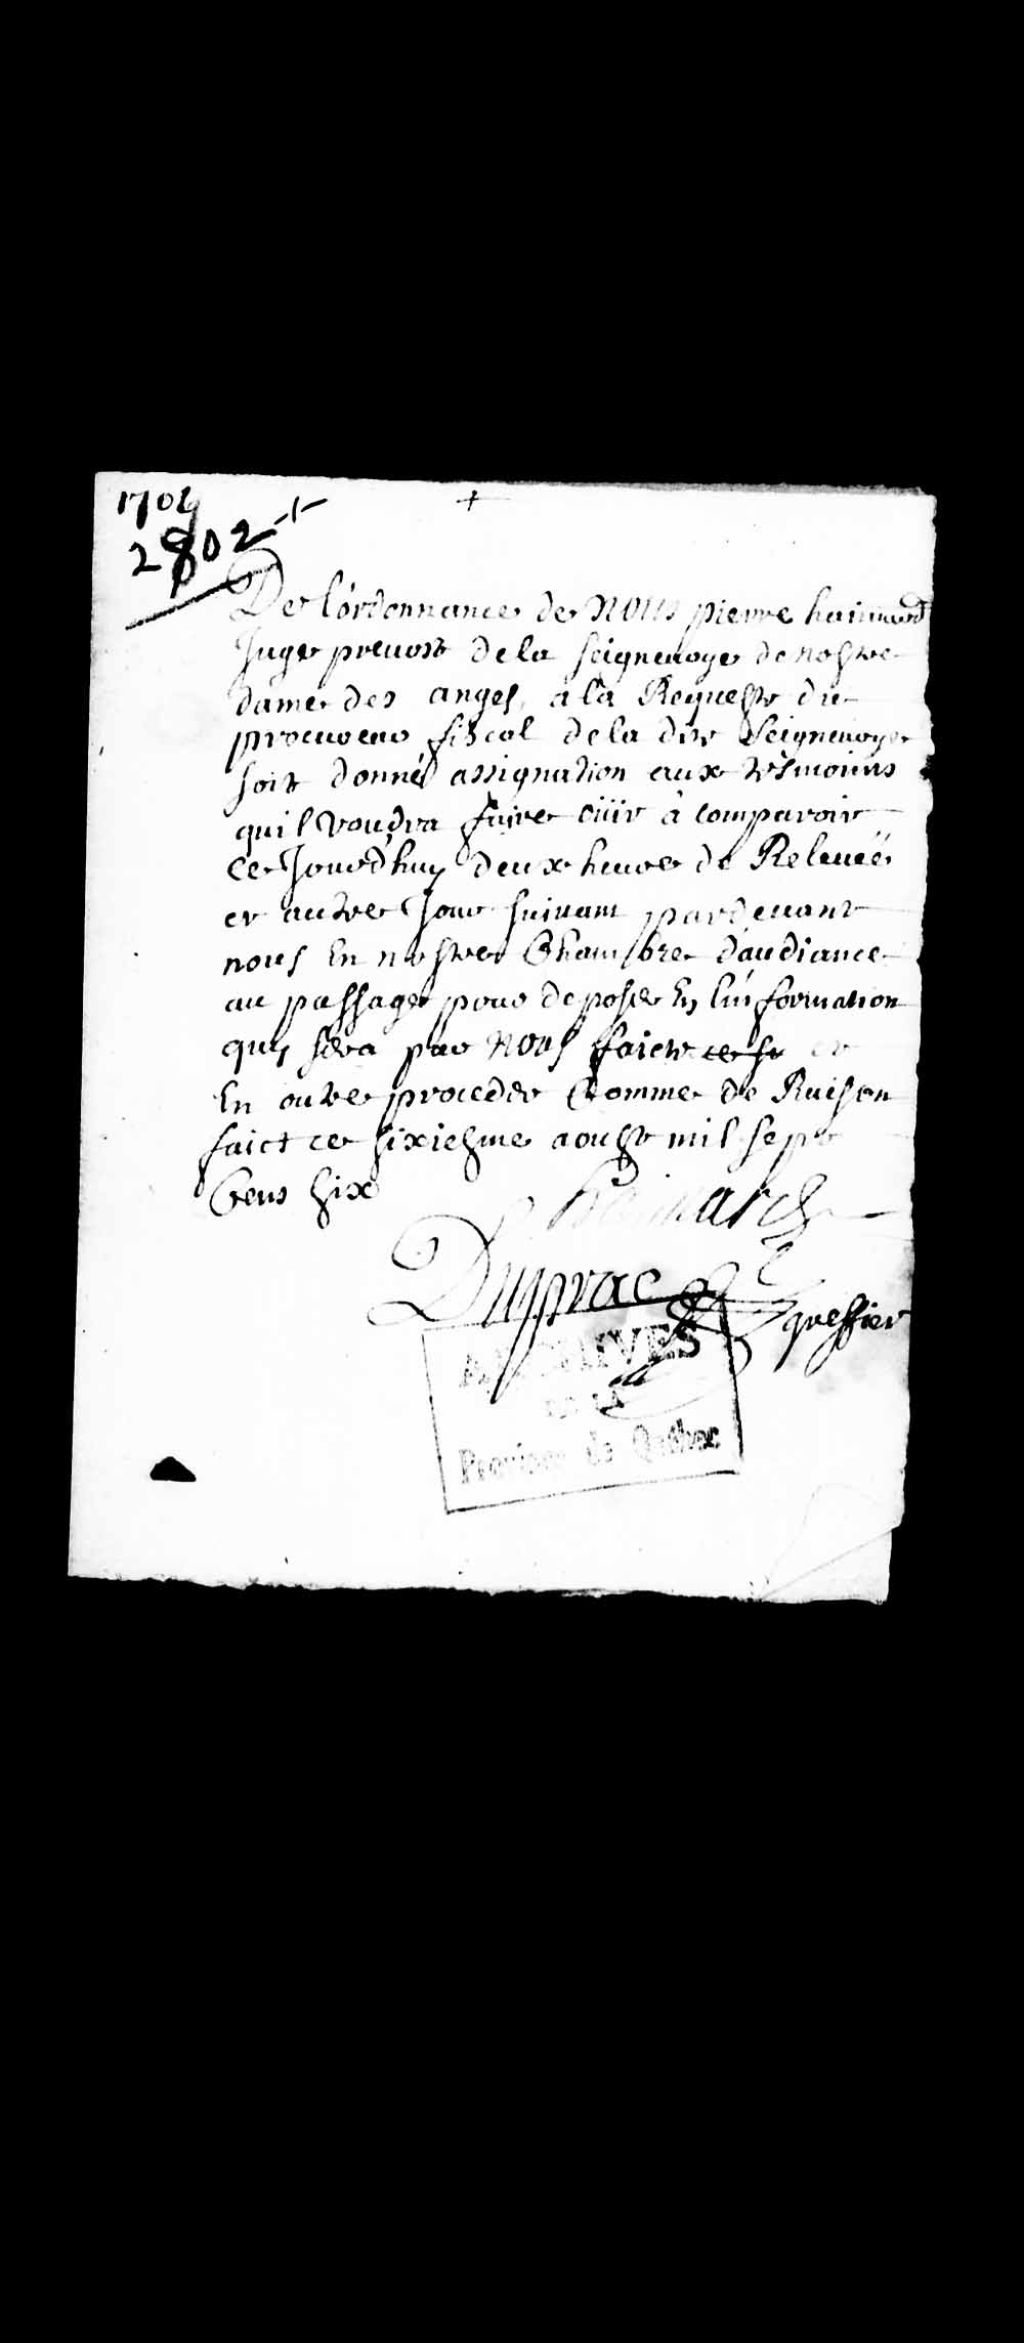 1706
2802
De l'ordonnance de Nous pierre haimard
Juge prevost de la seigneurye de nostre
dame des anges, a la Requeste du
procureur fiscal de la dite Seigneurye
soit donné assignation aux tesmoins
quil voudra faire ouiir a comparoir
ce Jourd'huy deux heures de Relevéé
et autre Jour suivant pardevant
nous En nostre Chambre d'audiance
au passage pour deposer En l'information
quy sera par Nous faicte et
En outre proceder Comme de Raison
faict ce sixiesme aoust mil sept
Cens six
haimard
Duprac
greffier
ARCHIVES
DE LA
Province de Québec